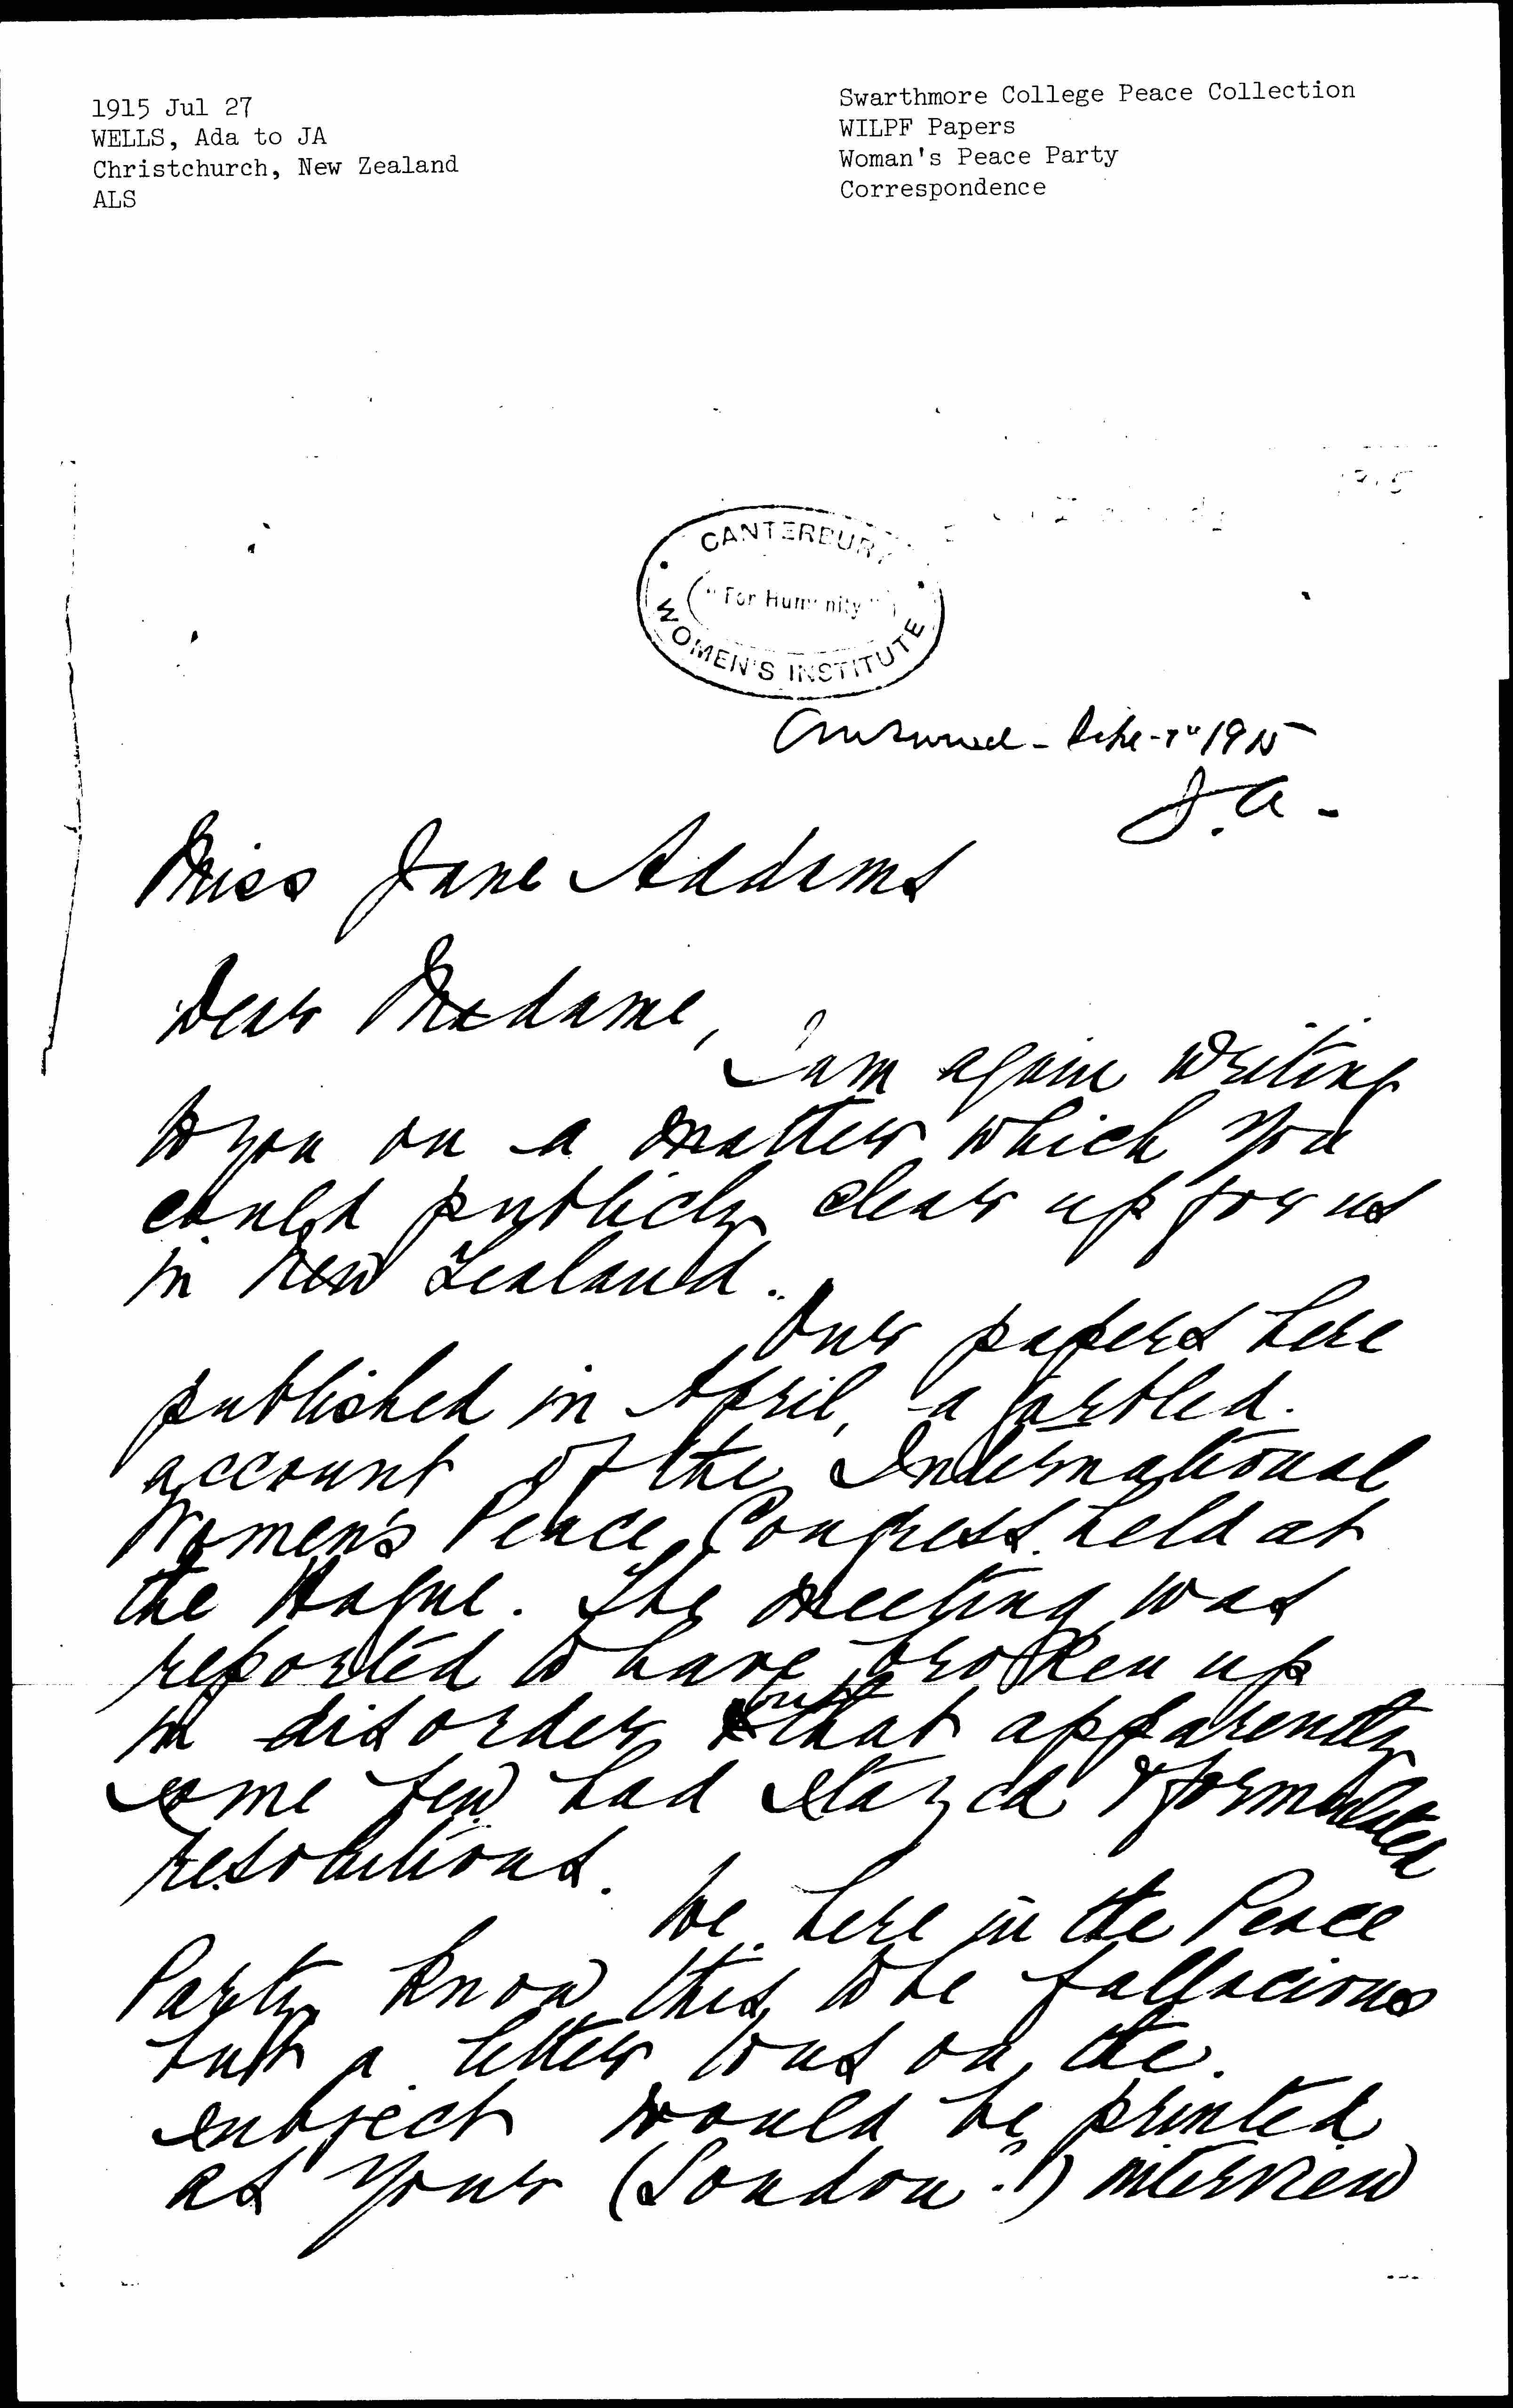 1915 Jul 27
WELLS, Ada to JA
Christchurch, New Zealand
ALS
Swarthmore College Peace Collection
WILPF Papers
Woman's Peace Party
Correspondence
CANTERBURY
"For Humanity"
WOMEN'S INSTITUTE
Answered - 1915
J.A-
Miss Jane Addams
Dear Madame,
I am again writing
to you on a matter which you
could publicly clear up for us
in New Zealand.
Our papers here
published in April, a garbled
account of the International
Women's Peace Congress held at
the Hague. The meeting was
reported to have broken up
in disorder but that apparently
some few had stayed & formulated
resolutions.
We here in the Peace
Party know this to be fallacious
but a letter to us on the
subject would be printed
as your (London?) interview